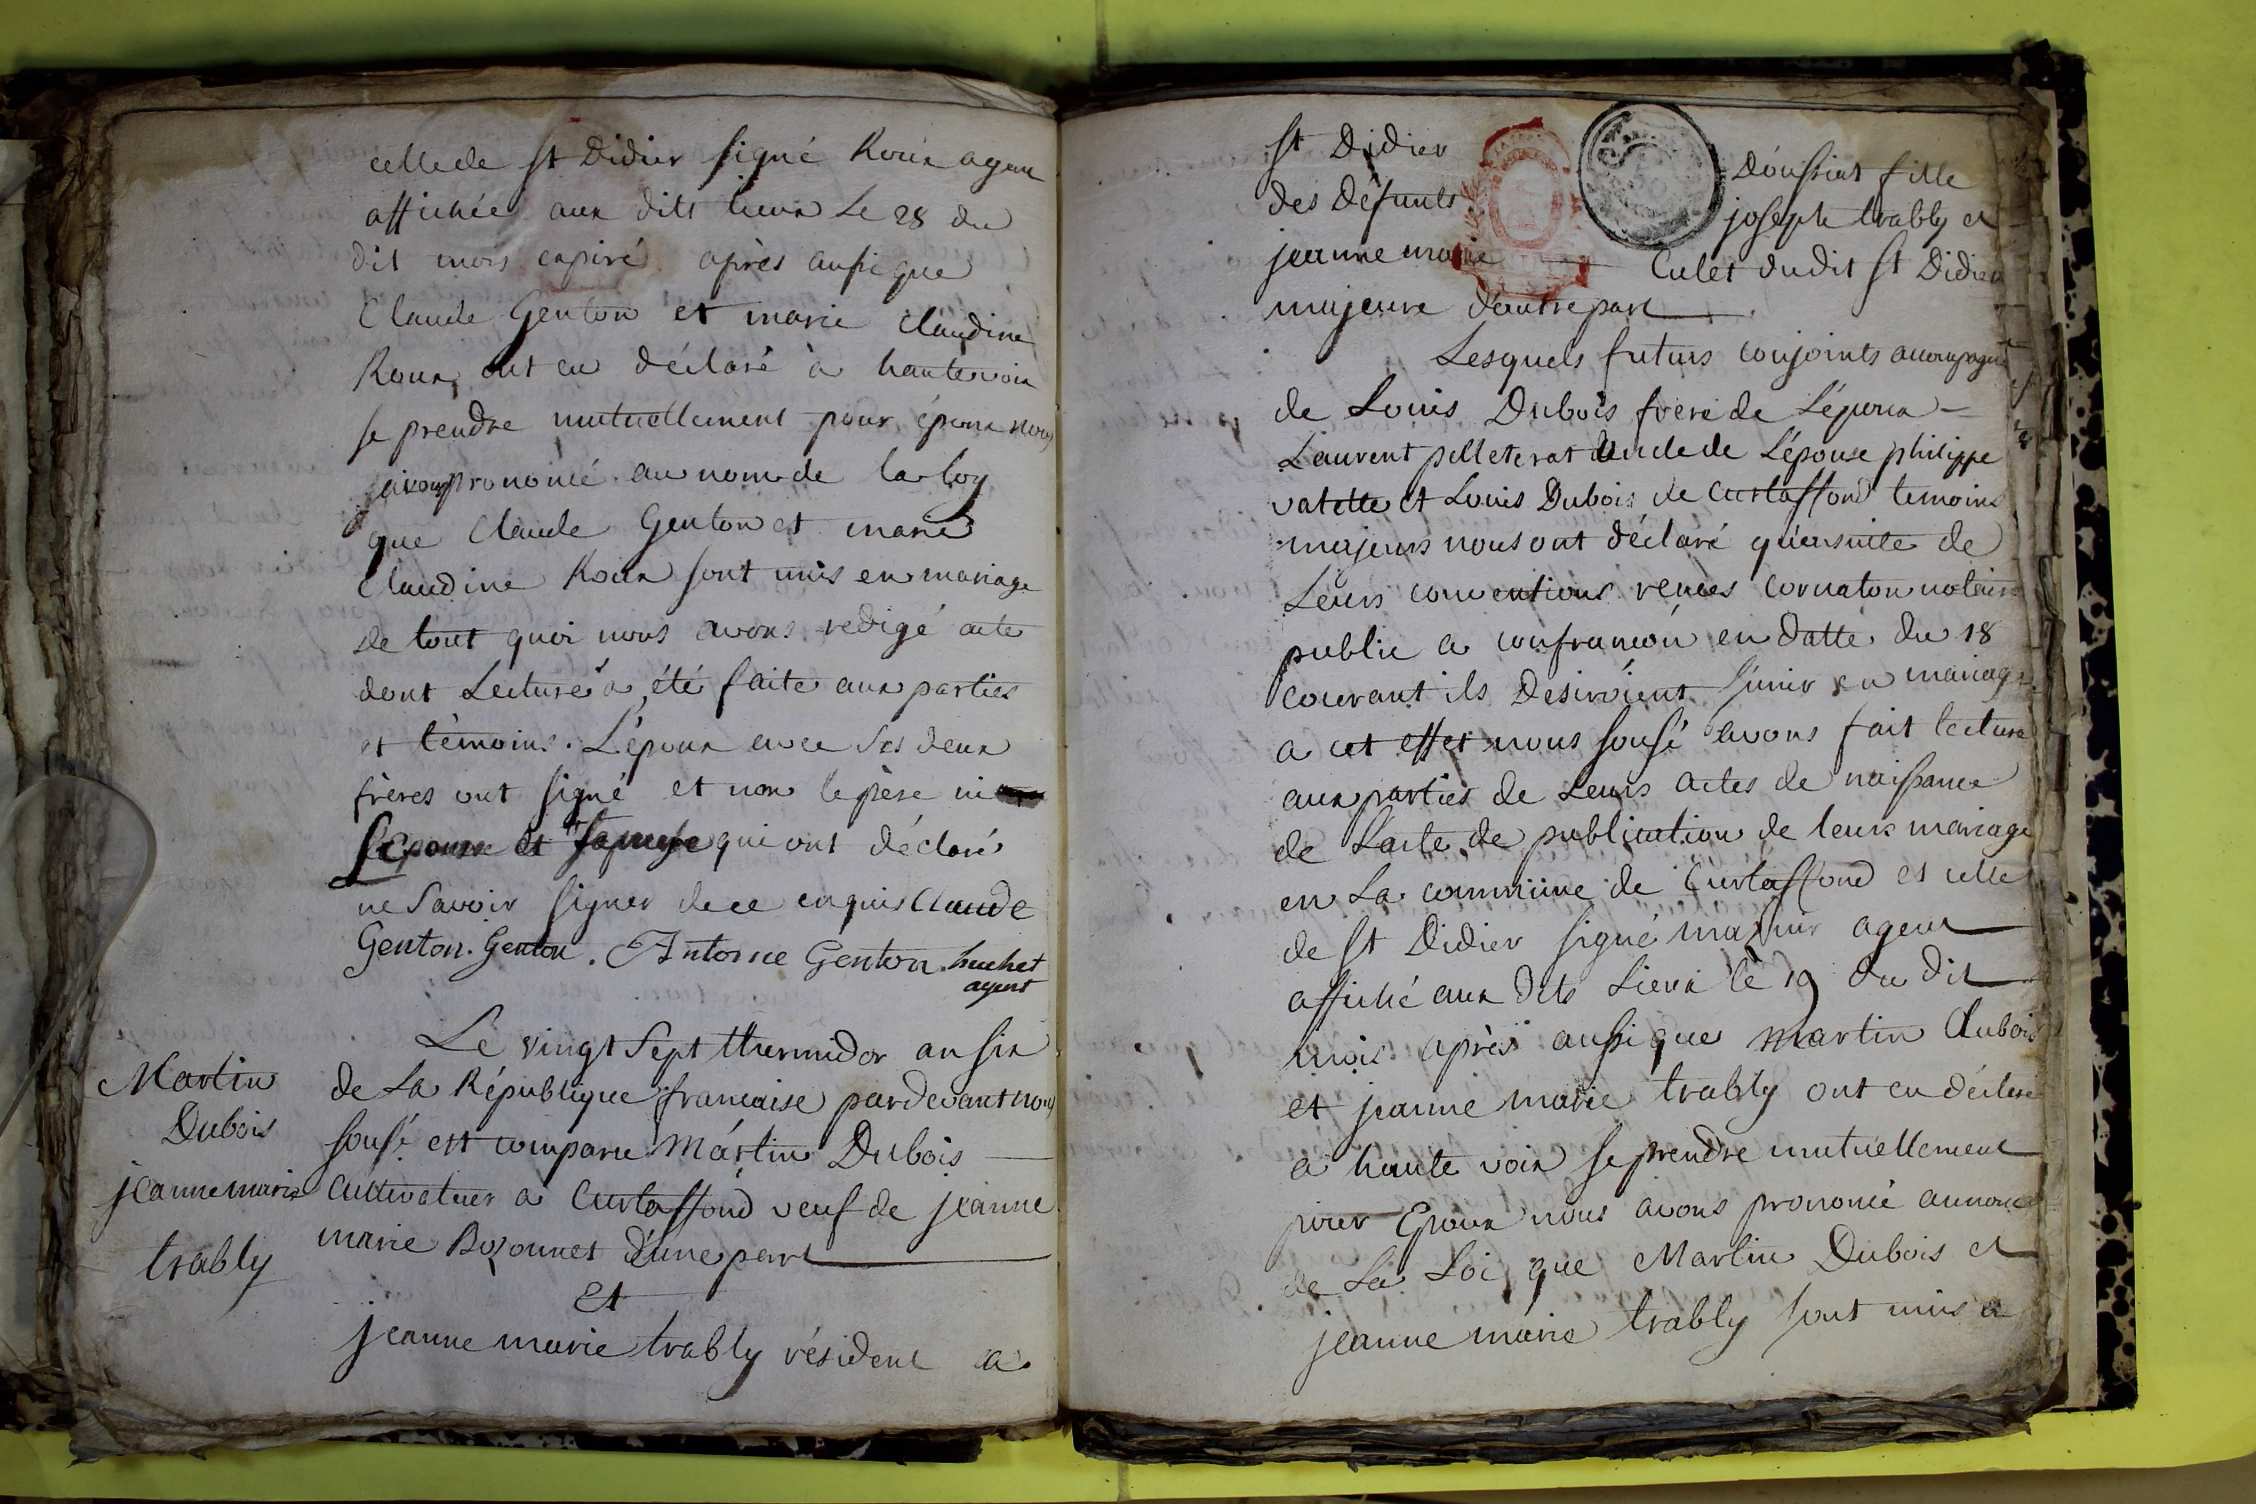 celle de st Didier signé Roux agent
affichée aux dits lieux Le 28 du
dit mois expiré après aussi que
Claude Genton et marie claudine
Roux ont eu déclaré à haute voix
se prendre mutuellement pour époux nous
avons prononcé au nom de la loy
que Claude Genton et marie
Claudine Roux sont unis en mariage
de tout quoi nous avons redigé acte
dont Lecture a été faite aux parties
et témoins. L'époux avec ses deux
frères ont signé et non le père ni
L'Epouse et qui ont déclaré
ne savoir signer de ce enquis Claude
Genton. Genton. Antoine Genton. huchet
agent
Le vingt Sept thermidor an six
de La République francaise pardevant nous
sousé est comparu Martin Dubois
Cultivateur a Curtaffond veuf de jeanne
marie Bozonnet d'une part
Et
jeanne marie trably résident a
Martin
Dubois
jeanne marie
trably
st Didier Doussiat fille
des Défunts joseph trably et
jeanne marie Culet dudit st Didier
majeure d'autre part
Lesquels futurs conjoints accompagné
de Louis Dubois frere de L'époux
Laurent pelleterat oncle de L'épouse philippe
vatette et Louis Dubois de Curtaffond temoins
majeurs nous ont déclaré qu'ensuite de
Leurs conventions reçues Cornaton notaire
public a confrançon en datte du 18
courant ils desiroient s'unir en mariage
a cet effet nous sousé avons fait lecture
aux parties de Leurs actes de naissance
de L'acte de publication de leurs mariage
en La commune de Curtaffond et celle
de st Didier signé agent
affiché aux dits Lieux le 19 du dit
mois après aussi que Martin Dubois
et jeanne marie trably ont eu déclaré
a haute voix se prendre mutuellement
pour Epoux nous avons prononcé au nom
de La Loi que Martin Dubois et
jeanne marie trably sont unis e